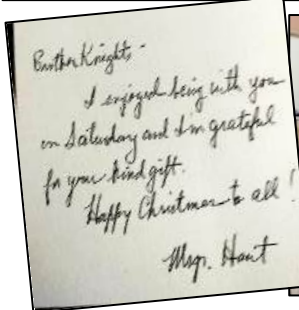 Brother Knights -
I enjoyed being with you
on Saturday and I'm grateful
for your kind gift.
Happy Christmas to all!
Msgr. Hart